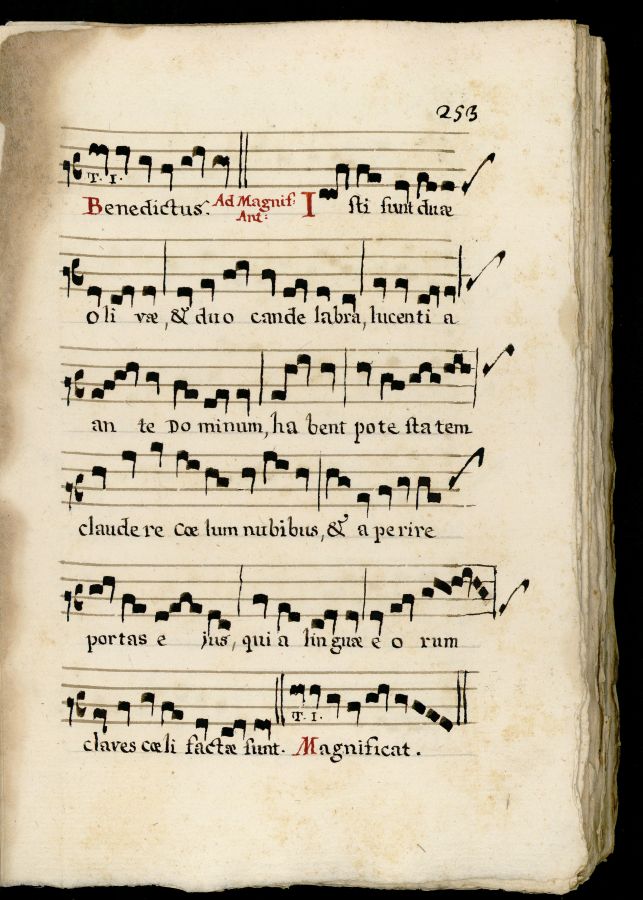 253
T. 1.
Benedictus. Ad Magnif: Ant: Isti sunt duæ
oli væ, & duo cande labra, lucenti a
an te Do minum, ha bent pote sta tem
claude re Cœ lum nubibus, & a perire
portas e jus, qui a linguæ e o rum
T. 1.
claves cœli factæ sunt. Magnificat.